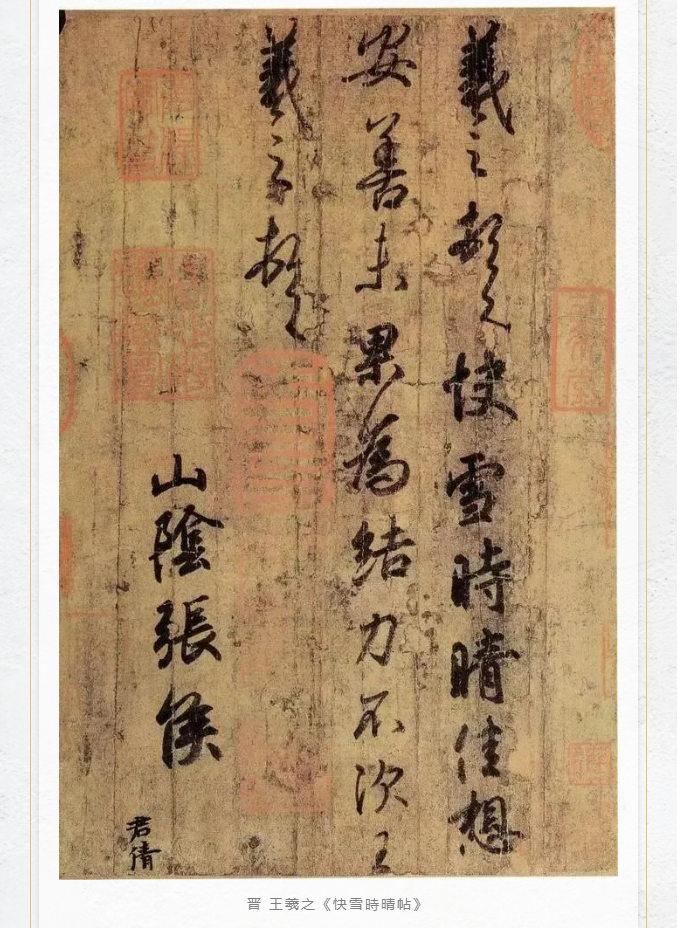 羲之頓首快雪時晴佳想
安善未果為結力不次王
羲之頓首
山陰張侯
君倩
晋 王羲之《快雪時晴帖》